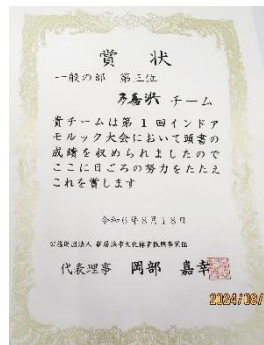 賞状
一般の部 第三位
多喜浜 チーム
貴チームは第1回インドア
モルック大会において頭書の
成績を収められましたので
ここに日ごろの努力をたたえ
これを賞します
令和6年8月18日
公益財団法人 新居浜市文化体育振興事業団
代表理事 岡部 嘉幸
2024/08/